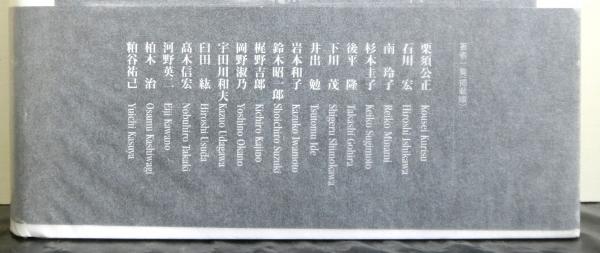 著者一覧(掲載順)
栗須公正 Kousei Kurisu
石川　宏 Hiroshi Ishikawa
南　玲子 Reiko Minami
杉本圭子 Keiko Sugimoto
後平　隆 Takashi Gohira
下川　茂 Shigeru Shimokawa
井出　勉 Tsutomu Ide
岩本和子 Kazuko Iwamoto
鈴木昭一郎 Shoichiro Suzuki
梶野吉郎 Kichiro Kajino
岡野淑乃 Yoshino Okano
宇田川和夫 Kazuo Udagawa
臼田　紘 Hiroshi Usuda
高木信宏 Nobuhiro Takaki
河野英二 Eiji Kawano
柏木　治 Osamu Kashiwagi
粕谷祐己 Yuichi Kasuya